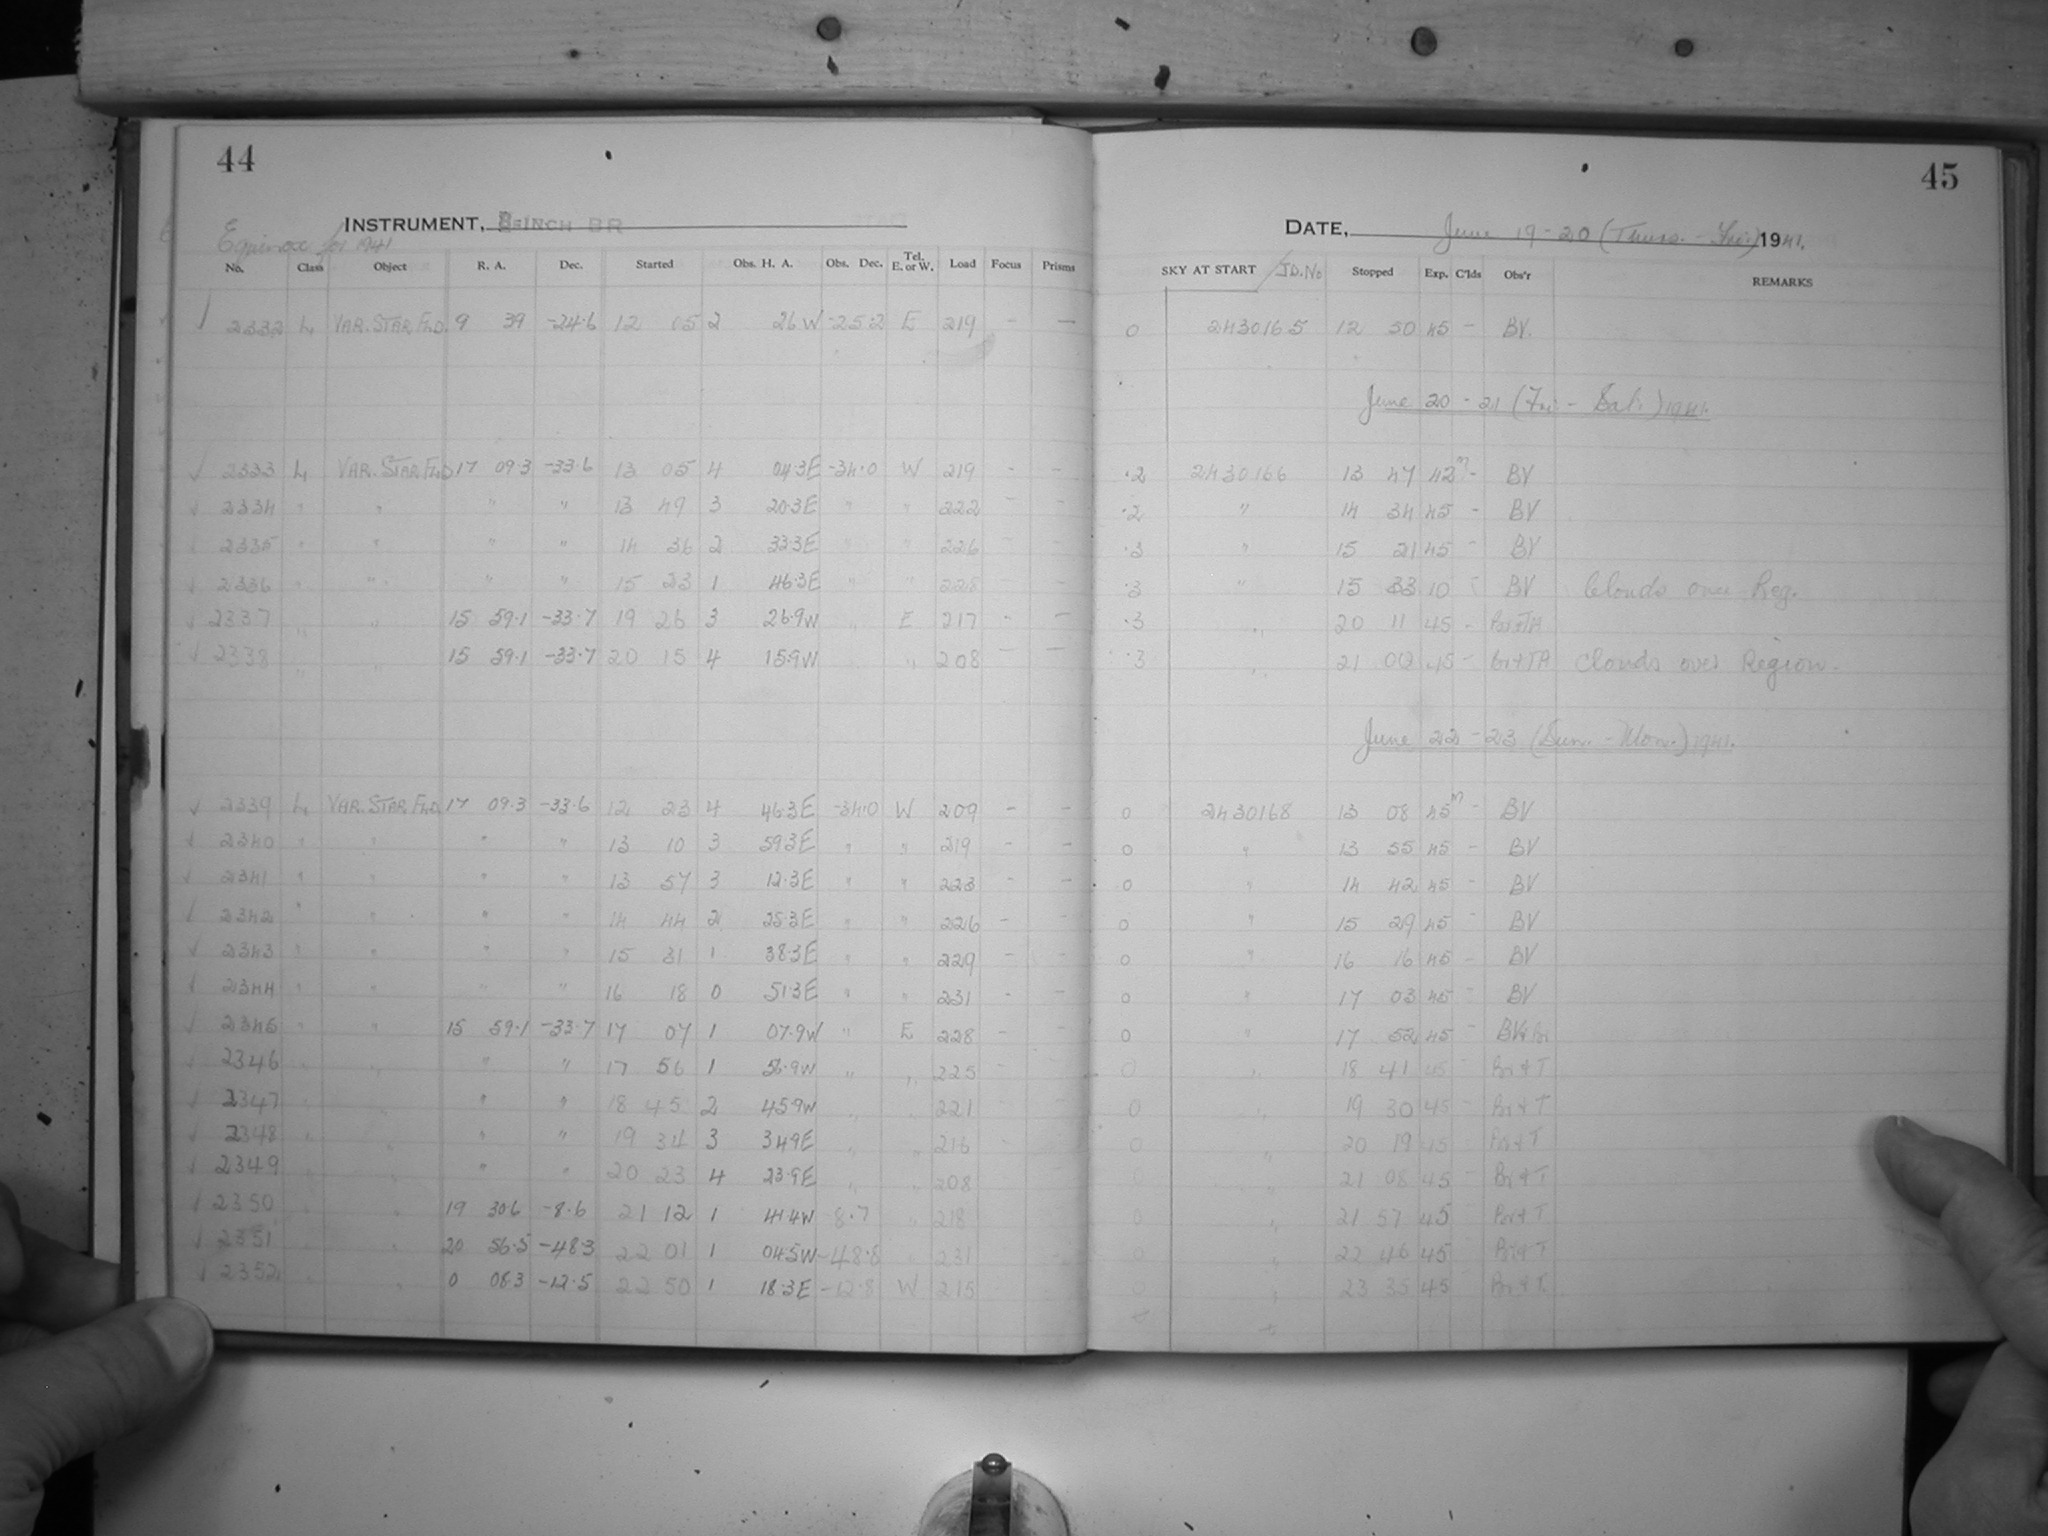 44
INSTRUMENT, 8-INCH BR
Equinox for 1941
No. Class Object R. A. Dec. Started Obs. H. A. Obs. Dec. Tel. E. or W. Load Focus Prisms
2332 L VAR. STAR FLD. 9 39 -24.6 12 05 2 26 W -25.2 E 219 - -
2333 L VAR. STAR FLD 17 09.3 -33.6 13 05 4 04.3E -34.0 W 219 - -
2334 " " " " 13 49 3 20.3E " " 222 - -
2335 " " " " 14 36 2 33.3E " " 226 - -
2336 " " " " 15 23 1 46.3E " " 228 - -
2337 " " 15 59.1 -33.7 19 26 3 26.9W " E 217 - -
2338 " " 15 59.1 -33.7 20 15 4 15.9W " 208 - -
2339 L VAR. STAR FLD. 17 09.3 -33.6 12 23 4 46.3E -34.0 W 209 - -
2340 " " " " 13 10 3 59.3E " " 219 - -
2341 " " " " 13 57 3 12.3E " " 223 - -
2342 " " " " 14 44 2 25.3E " " 226 - -
2343 " " " " 15 31 1 38.3E " " 229 - -
2344 " " " " 16 18 0 51.3E " " 231 - -
2345 " " 15 59.1 -33.7 17 07 1 07.9W " E 228 - -
2346 " " " " 17 56 1 56.9W " " 225 -
2347 " " " " 18 45 2 45.9W " " 221
2348 " " " " 19 34 3 34.9E " " 216
2349 " " " " 20 23 4 23.9E " " 208
2350 " 19 30.6 -8.6 21 12 1 41.4W -8.7 " 218
2351 " 20 56.5 -48.3 22 01 1 04.5W -48.8 " 231
2352 " 0 08.3 -12.5 22 50 1 18.3E -12.8 W 215
45
DATE, June 19-20 (Thurs. - Fri.) 1941.
SKY AT START / J.D. No Stopped Exp. C'lds Obs'r REMARKS
0 2430165 12 50 45 - BV.
June 20 - 21 (Fri - Sat.) 1941.
.2 2430166 13 47 42m - BV
.2 " 14 34 45 - BV
.3 " 15 21 45 - BV
.3 " 15 33 10 BV Clouds over Reg.
.3 " 20 11 45 - Br+TA
.3 " 21 00 45 - Br+TA Clouds over Region -
June 22 - 23 (Sun. - Mon.) 1941.
0 2430168 13 08 45m - BV
0 " 13 55 45 - BV
0 " 14 42 45 - BV
0 " 15 29 45 - BV
0 " 16 16 45 - BV
0 " 17 03 45 - BV
0 " 17 52 45 - BV+Br
0 " 18 41 45 - Br+T
0 " 19 30 45 - Br+T
0 " 20 19 45 - Br+T
0 " 21 08 45 - Br+T
0 " 21 57 45 Br+T
0 " 22 46 45 Br+T
0 " 23 35 45 Br+T.